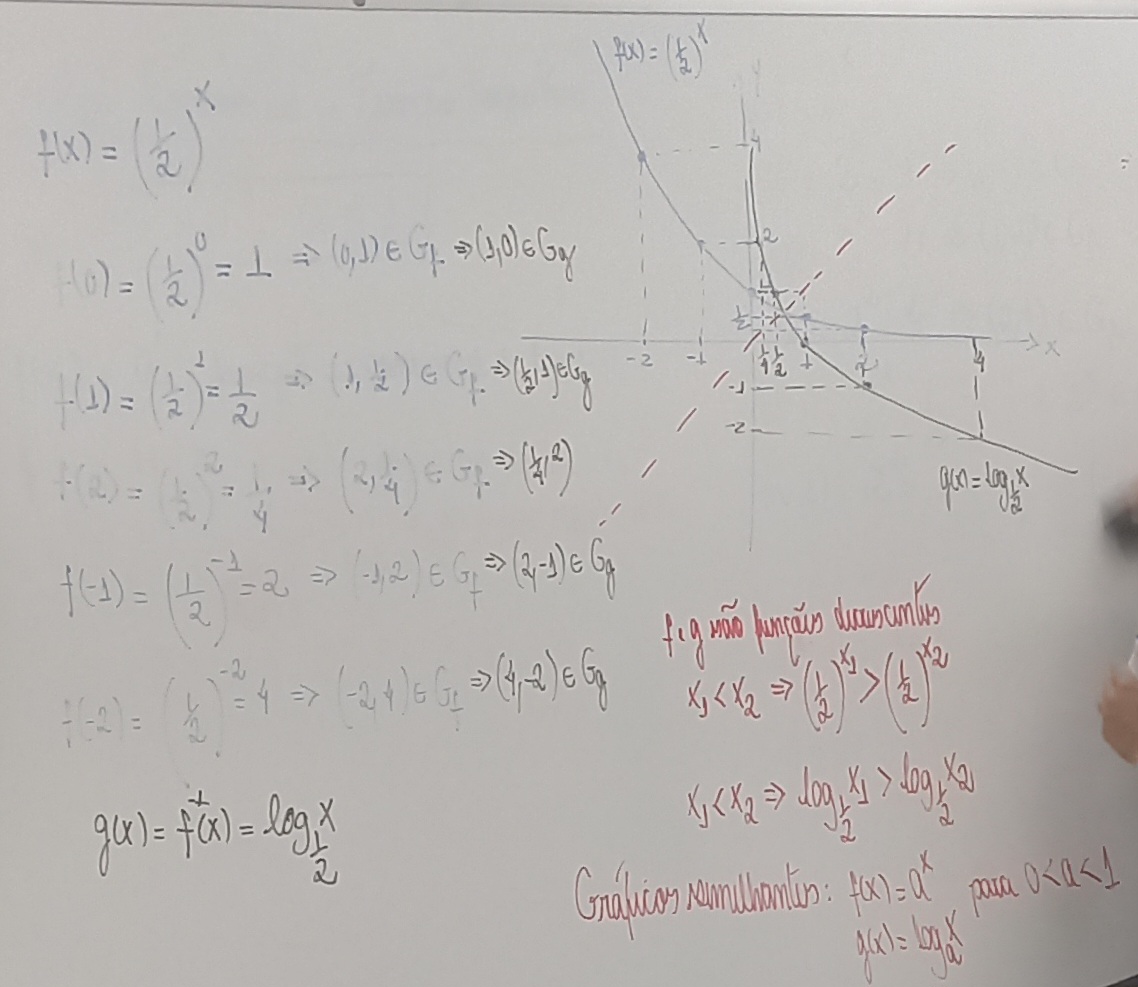 f(x) = (1/2)^x
f(0) = (1/2)^0 = 1 ⇒ (0,1) ∈ Gf. ⇒ (1,0) ∈ Gg
f(1) = (1/2)^1 = 1/2 ⇒ (1, 1/2) ∈ Gf. ⇒ (1/2, 1) ∈ Gg
f(2) = (1/2)^2 = 1/4 ⇒ (2, 1/4) ∈ Gf. ⇒ (1/4, 2)
f(-1) = (1/2)^-1 = 2 ⇒ (-1,2) ∈ Gf ⇒ (2,-1) ∈ Gg
f(-2) = (1/2)^-2 = 4 ⇒ (-2,4) ∈ Gf ⇒ (4,-2) ∈ Gg
g(x) = f^-1(x) = log_1/2 x
f(x) = (1/2)^x
y
4
2
1/2
-2 -1 1/4 1/2 1 2 4 x
-1
-2
g(x) = log_1/2 x
f e g são funções decrescentes
x1 < x2 ⇒ (1/2)^x1 > (1/2)^x2
x1 < x2 ⇒ log_1/2 x1 > log_1/2 x2
Gráficos semelhantes: f(x) = a^x para 0 < a < 1
g(x) = log_a x